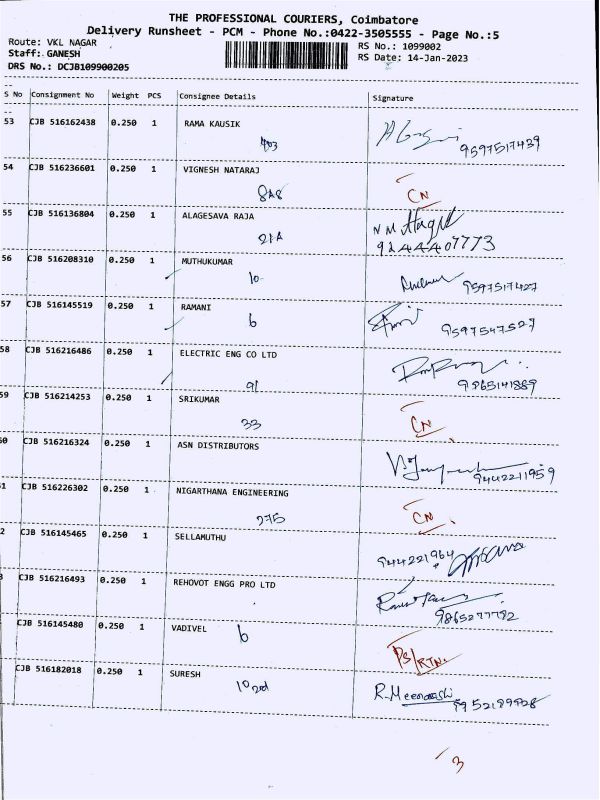 THE PROFESSIONAL COURIERS, Coimbatore
Delivery Runsheet - PCM - Phone No.:0422-3505555 - Page No.:5
Route: VKL NAGAR
Staff: GANESH
DRS No.: DCJB109900205
RS No.: 1099002
RS Date: 14-Jan-2023
S No Consignment No Weight PCS Consignee Details Signature
53 CJB 516162438 0.250 1 RAMA KAUSIK
403 9597517439
54 CJB 516236601 0.250 1 VIGNESH NATARAJ
CN
55 CJB 516136804 0.250 1 ALAGESAVA RAJA
21A 9244407773
56 CJB 516208310 0.250 1 MUTHUKUMAR
10 9597517427
57 CJB 516145519 0.250 1 RAMANI
6 9597547527
58 CJB 516216486 0.250 1 ELECTRIC ENG CO LTD
91 9865141889
59 CJB 516214253 0.250 1 SRIKUMAR
33 CN
60 CJB 516216324 0.250 1 ASN DISTRIBUTORS
9442211959
1 CJB 516226302 0.250 1 NIGARTHANA ENGINEERING
275 CN
2 CJB 516145465 0.250 1 SELLAMUTHU
944221964
3 CJB 516216493 0.250 1 REHOVOT ENGG PRO LTD
9865277792
CJB 516145480 0.250 1 VADIVEL
6 DS/RTN.
CJB 516182018 0.250 1 SURESH
10 2nd R. Meenakshi
3